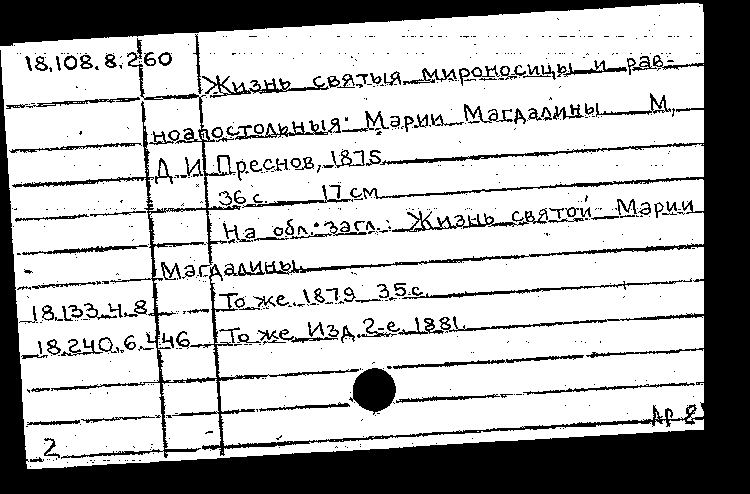 18.108.8.260
Жизнь святыя мироносицы и рав-
ноапостольныя Марии Магдалины. М,
Д. И. Преснов, 1875.
36 с. 17 см
На обл. загл.: Жизнь святой Марии
Магдалины.
18.133.4.8 То же. 1879 35 с.
18.240.6.446 То же. Изд. 2-е. 1881.
2